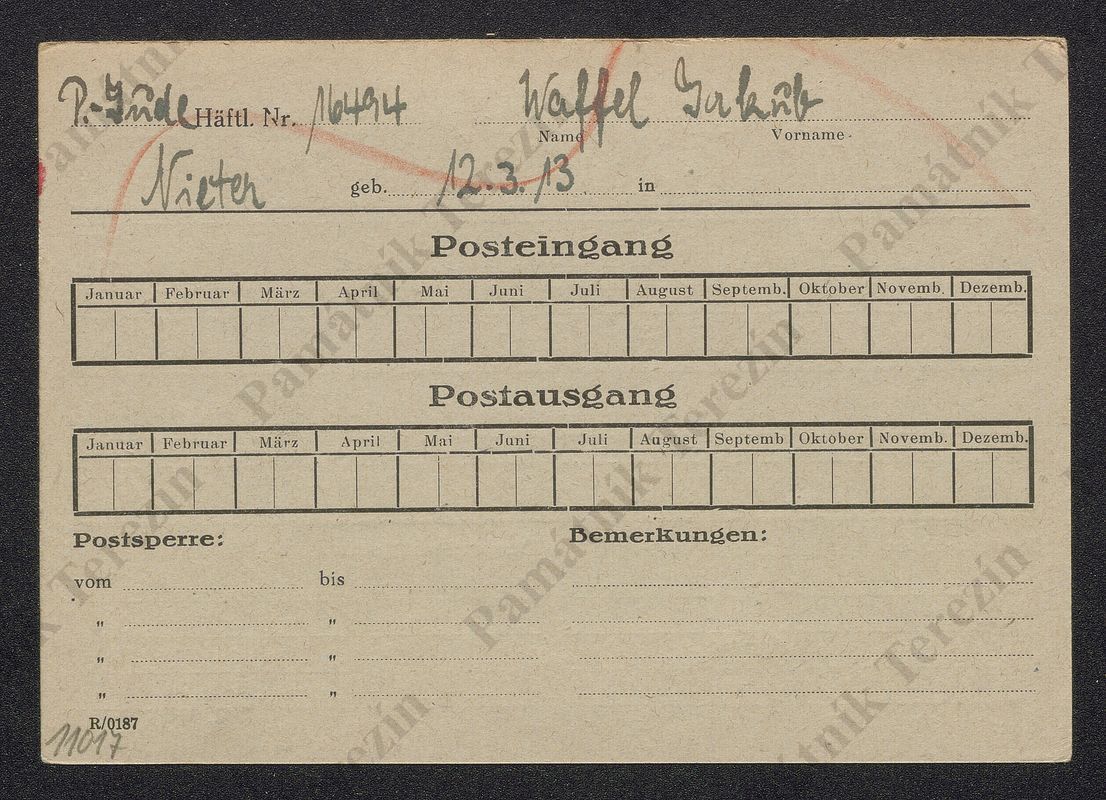 P.-Jude Häftl. Nr. 16494 Waffel Jakub
Name Vorname.
Nieter geb. 12.3.13 in
Posteingang
Januar Februar März April Mai Juni Juli August Septemb. Oktober Novemb. Dezemb.
Postausgang
Januar Februar März April Mai Juni Juli August Septemb Oktober Novemb. Dezemb.
Postsperre: Bemerkungen:
vom bis
" "
" "
" "
R/0187
11017
Památník Terezín